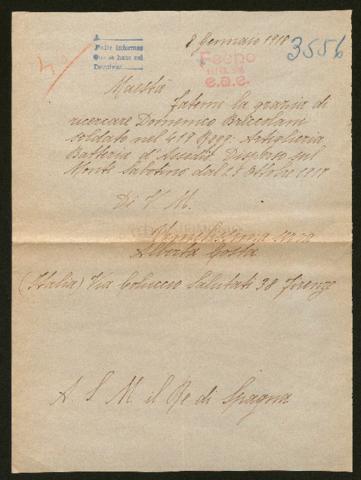 Pedir informes
8 Gennaio 1918
3556
Fecho
e.a.e.
Maestà
fatemi la grazia di
ricercare Domenico
soldato nel Regg: Artiglieria
Batteria d'Assedio Disperso sul
Monte Sabotino dal 23 Ottobre 1917
Di V. M.
Alberta Costa
(Italia) Via Coluccio Salutati 38 Firenze
A. S. M. il Re di Spagna